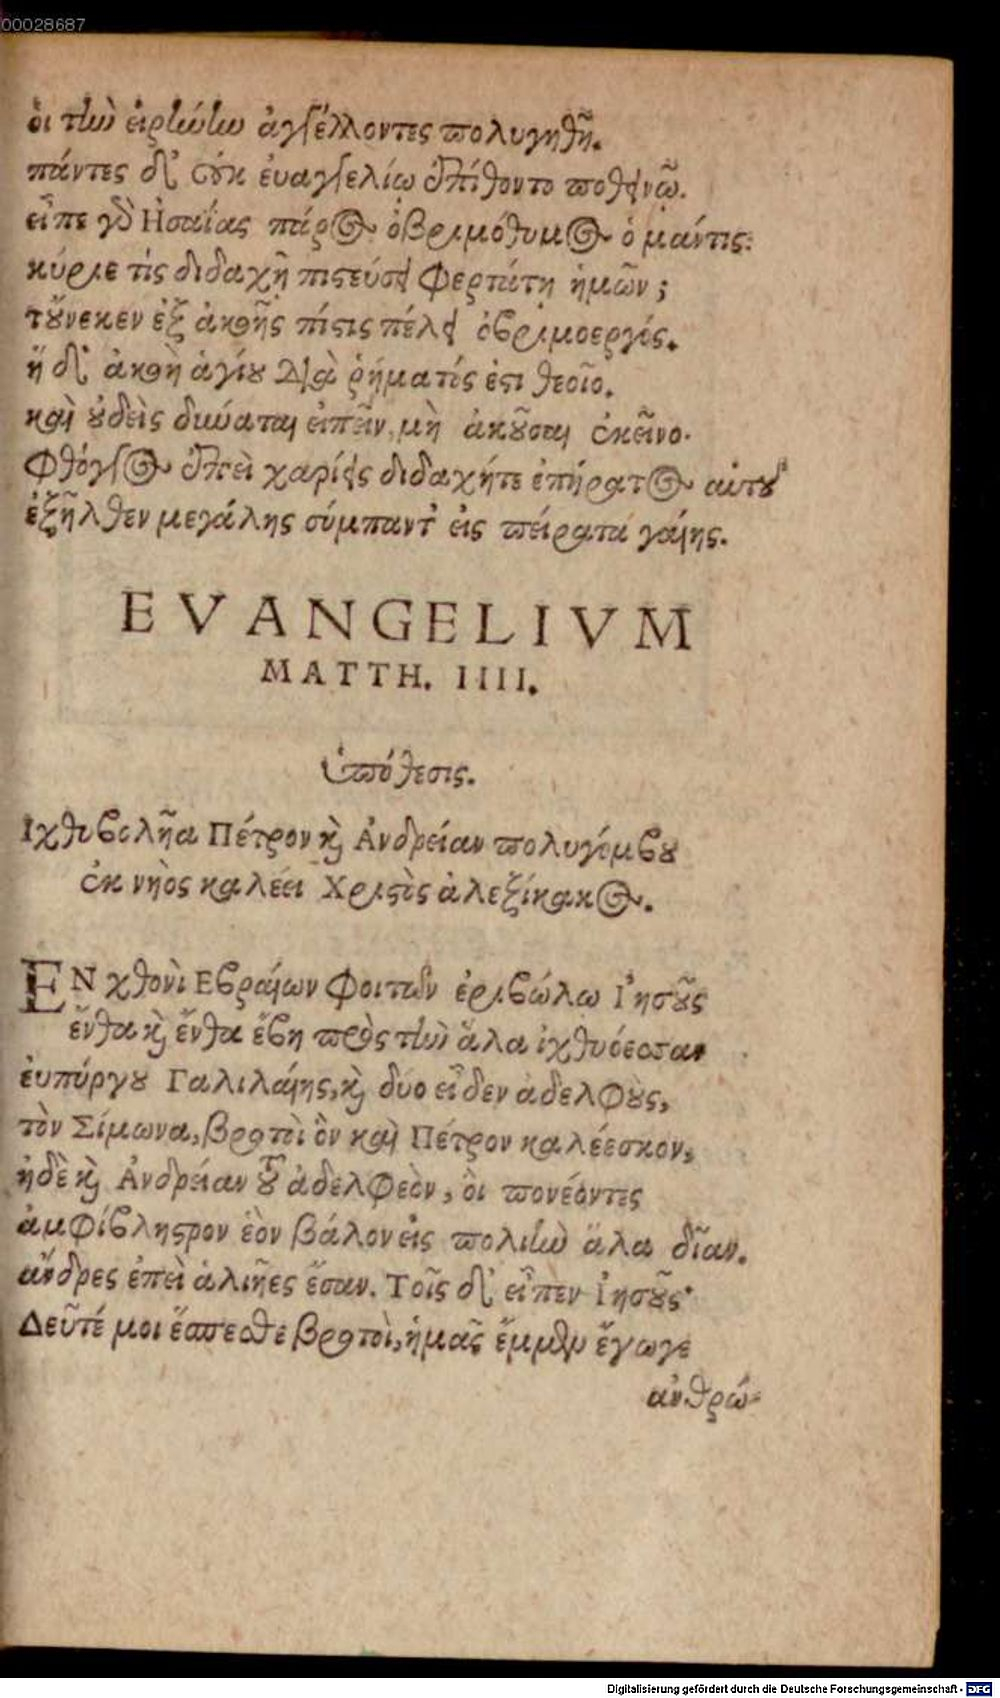 00028687
οἱ τὴν εἰρήνην ἀγγέλλοντες πολυγηθῆ.
πάντες δ' οὐκ ἐυαγγελίῳ ἐπίθοντο ποθεινῷ.
εἶπε γὰρ Ησαΐας πάρος ὀβριμόθυμος ὁ μάντις:
κύριε τίς διδαχῇ πιστεύσει φερτάτῃ ἡμῶν;
τοὔνεκεν ἐξ ἀκοῆς πίστις πέλει ὀβριμοεργός.
ἡ δ' ἀκοὴ ἁγίου διὰ ῥήματός ἐστι θεοῖο.
καὶ οὐδεὶς δύναται εἰπεῖν, μὴ ἀκοῦσαι ἐκεῖνο.
φθόγγος ἐπεὶ χαρίεις διδαχήτε ἐπήρατος αὐτοῦ
ἐξῆλθεν μεγάλης σύμπαντ' εἰς πείρατα γαίης.
EVANGELIVM
MATTH. IIII.
ὑπόθεσις.
Ιχθυβολῆα Πέτρον καὶ Ἀνδρείαν πολυγόμφου
ἐκ νηὸς καλέει Χριστὸς ἀλεξίκακος.
ΕΝ χθονὶ Εβραίων φοιτῶν ἐριβώλῳ Ἰησοῦς
ἔνθα καὶ ἔνθα ἔβη πρὸς τὴν ἅλα ἰχθυόεσσαν
ἐυπύργου Γαλιλαίης, καὶ δύο εἶδεν ἀδελφοὺς,
τὸν Σίμωνα, βροτοὶ ὃν καὶ Πέτρον καλέεσκον,
ἠδὲ καὶ Ἀνδρείαν τοῦ ἀδελφεὸν, οἳ πονέοντες
ἀμφίβληστρον ἑὸν βάλον εἰς πολιὴν ἅλα δῖαν.
ἄνδρες ἐπεὶ ἁλιῆες ἔσαν. Τοῖς δ' εἶπεν Ἰησοῦς·
Δεῦτέ μοι ἕσπεσθε βροτοὶ, ἡμᾶς ἔμμεν ἔγωγε
ἀνθρώ-
Digitalisierung gefördert durch die Deutsche Forschungsgemeinschaft - DFG